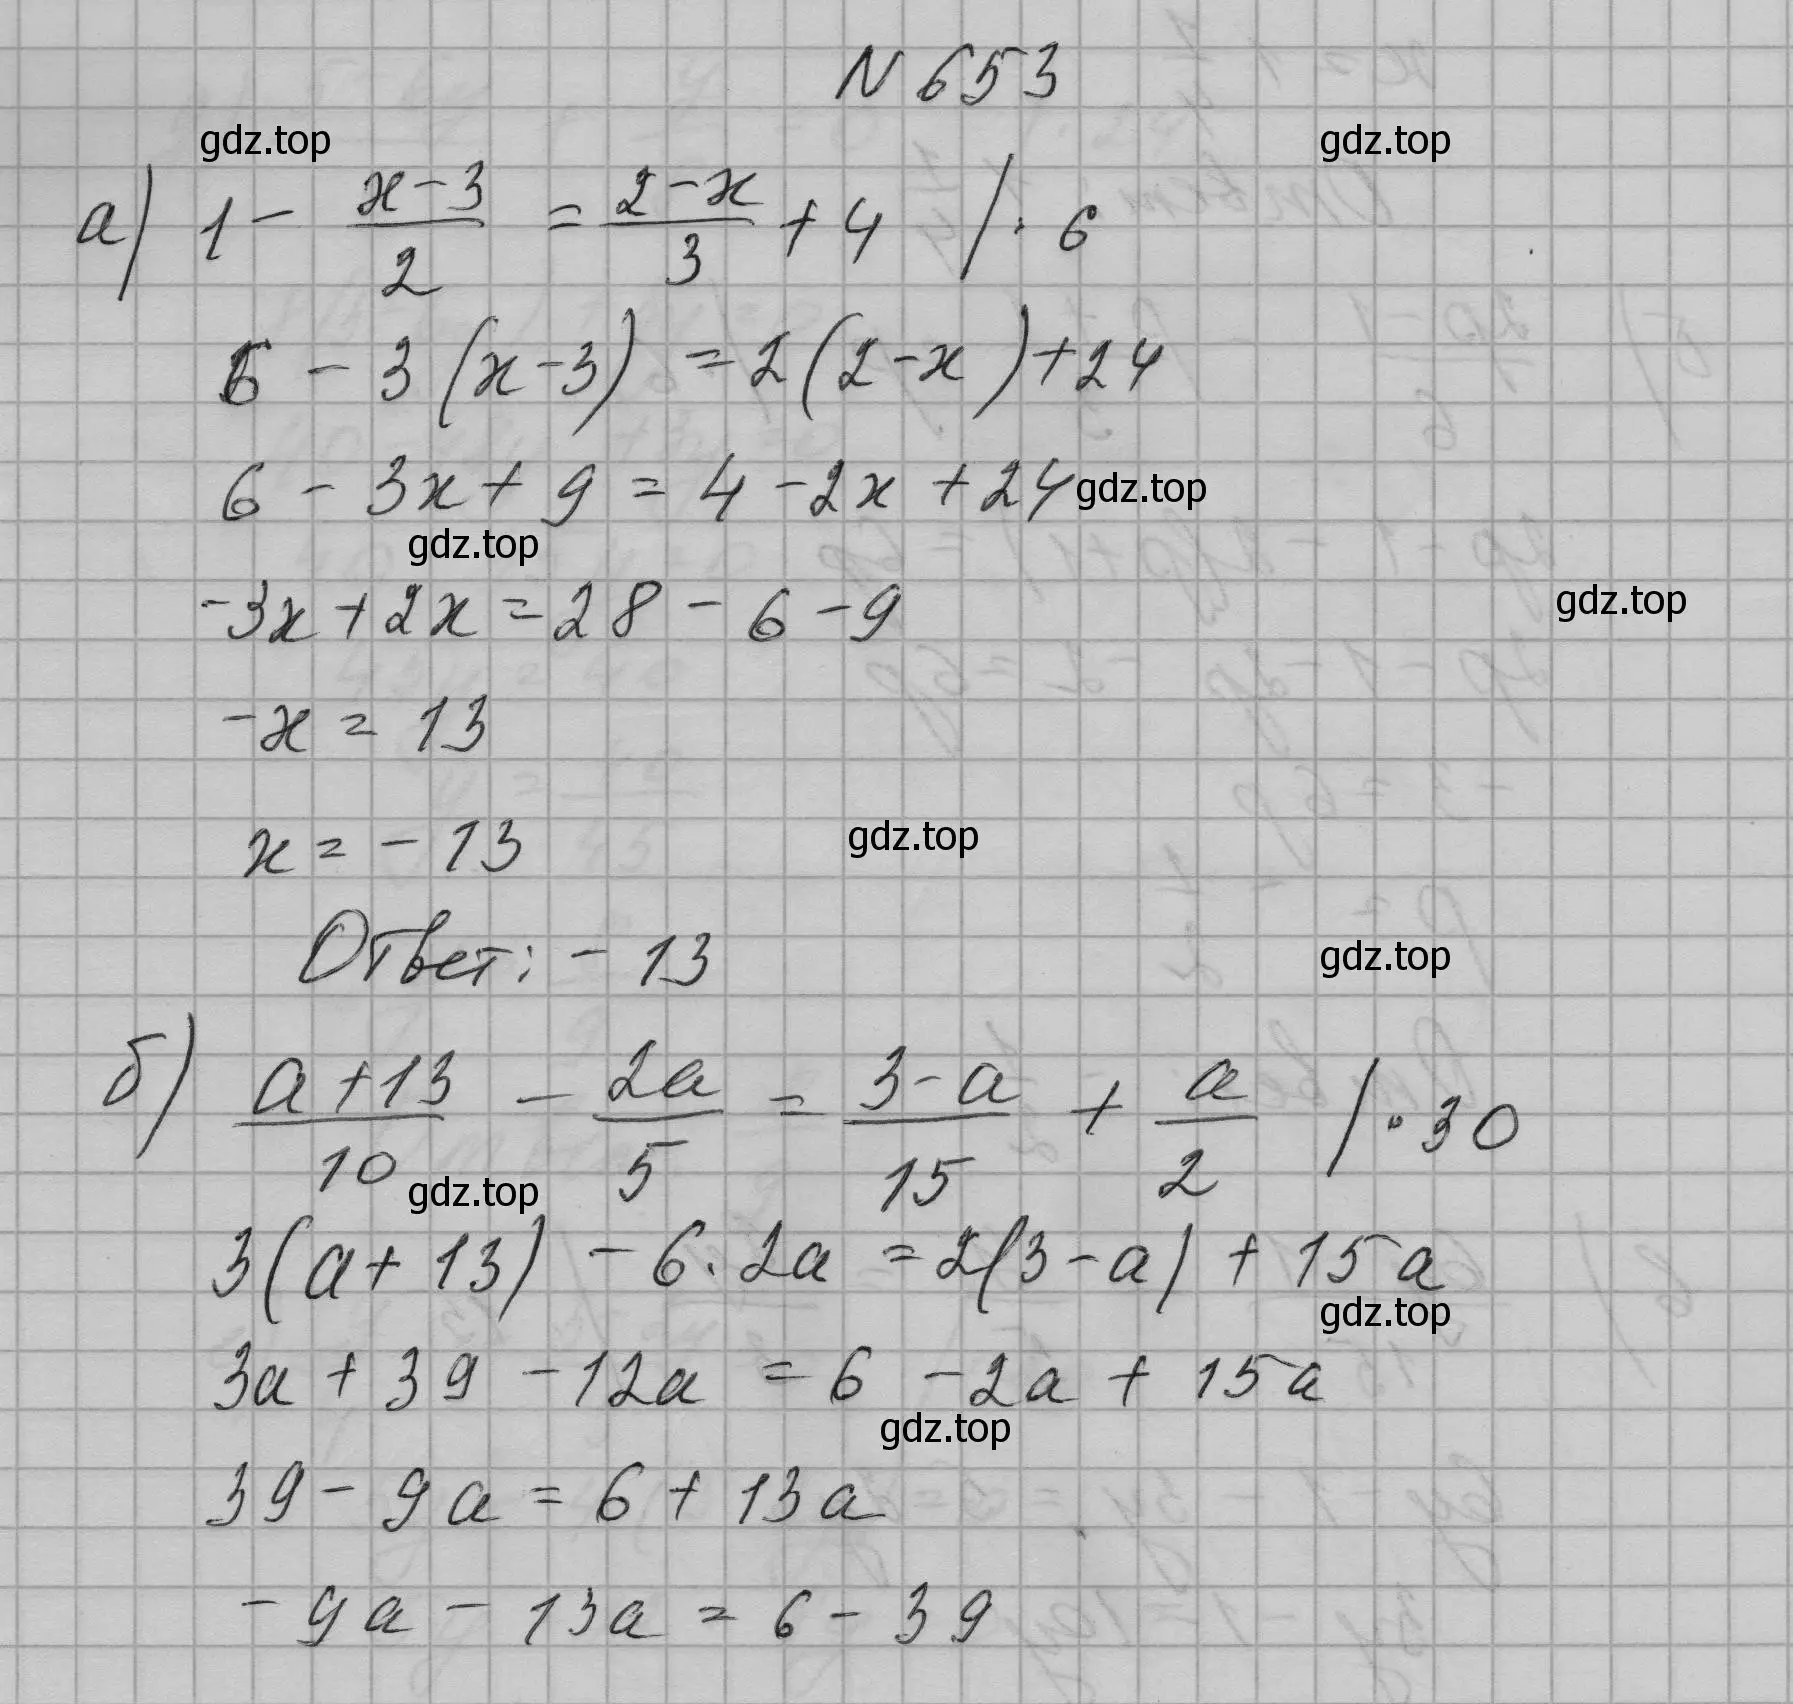 N 653
gdz.top gdz.top
а) 1 - (x-3)/2 = (2-x)/3 + 4 / · 6
6 - 3(x-3) = 2(2-x)+24
6 - 3x + 9 = 4 - 2x + 24 gdz.top
gdz.top
-3x + 2x = 28 - 6 - 9 gdz.top
-x = 13
x = - 13 gdz.top
Ответ: - 13 gdz.top
б) (a+13)/10 - 2a/5 = (3-a)/15 + a/2 / · 30
gdz.top
3(a+13) - 6·2a = 2(3-a) + 15a
gdz.top
3a + 39 - 12a = 6 - 2a + 15a
gdz.top
39 - 9a = 6 + 13a
- 9a - 13a = 6 - 39